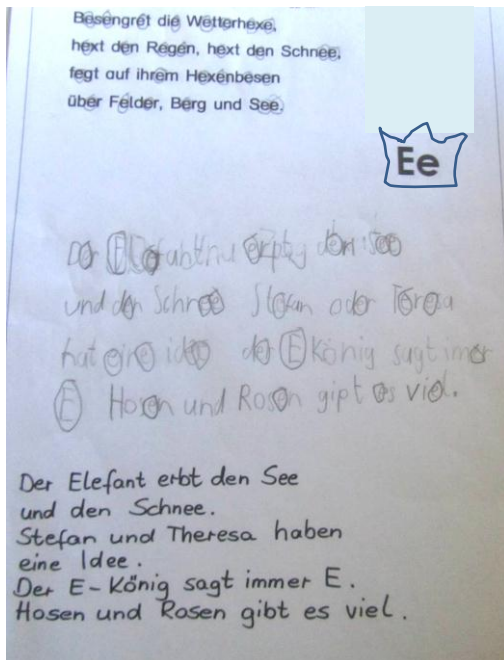 Besengret die Wetterhexe,
hext den Regen, hext den Schnee,
fegt auf ihrem Hexenbesen
über Felder, Berg und See.
Ee
Der den See
und den Schnee Stefan oder Teresa
hat eine idee der E König sagt imer
E Hosen und Rosen gipt es viel.
Der Elefant erbt den See
und den Schnee.
Stefan und Theresa haben
eine Idee.
Der E-König sagt immer E.
Hosen und Rosen gibt es viel.